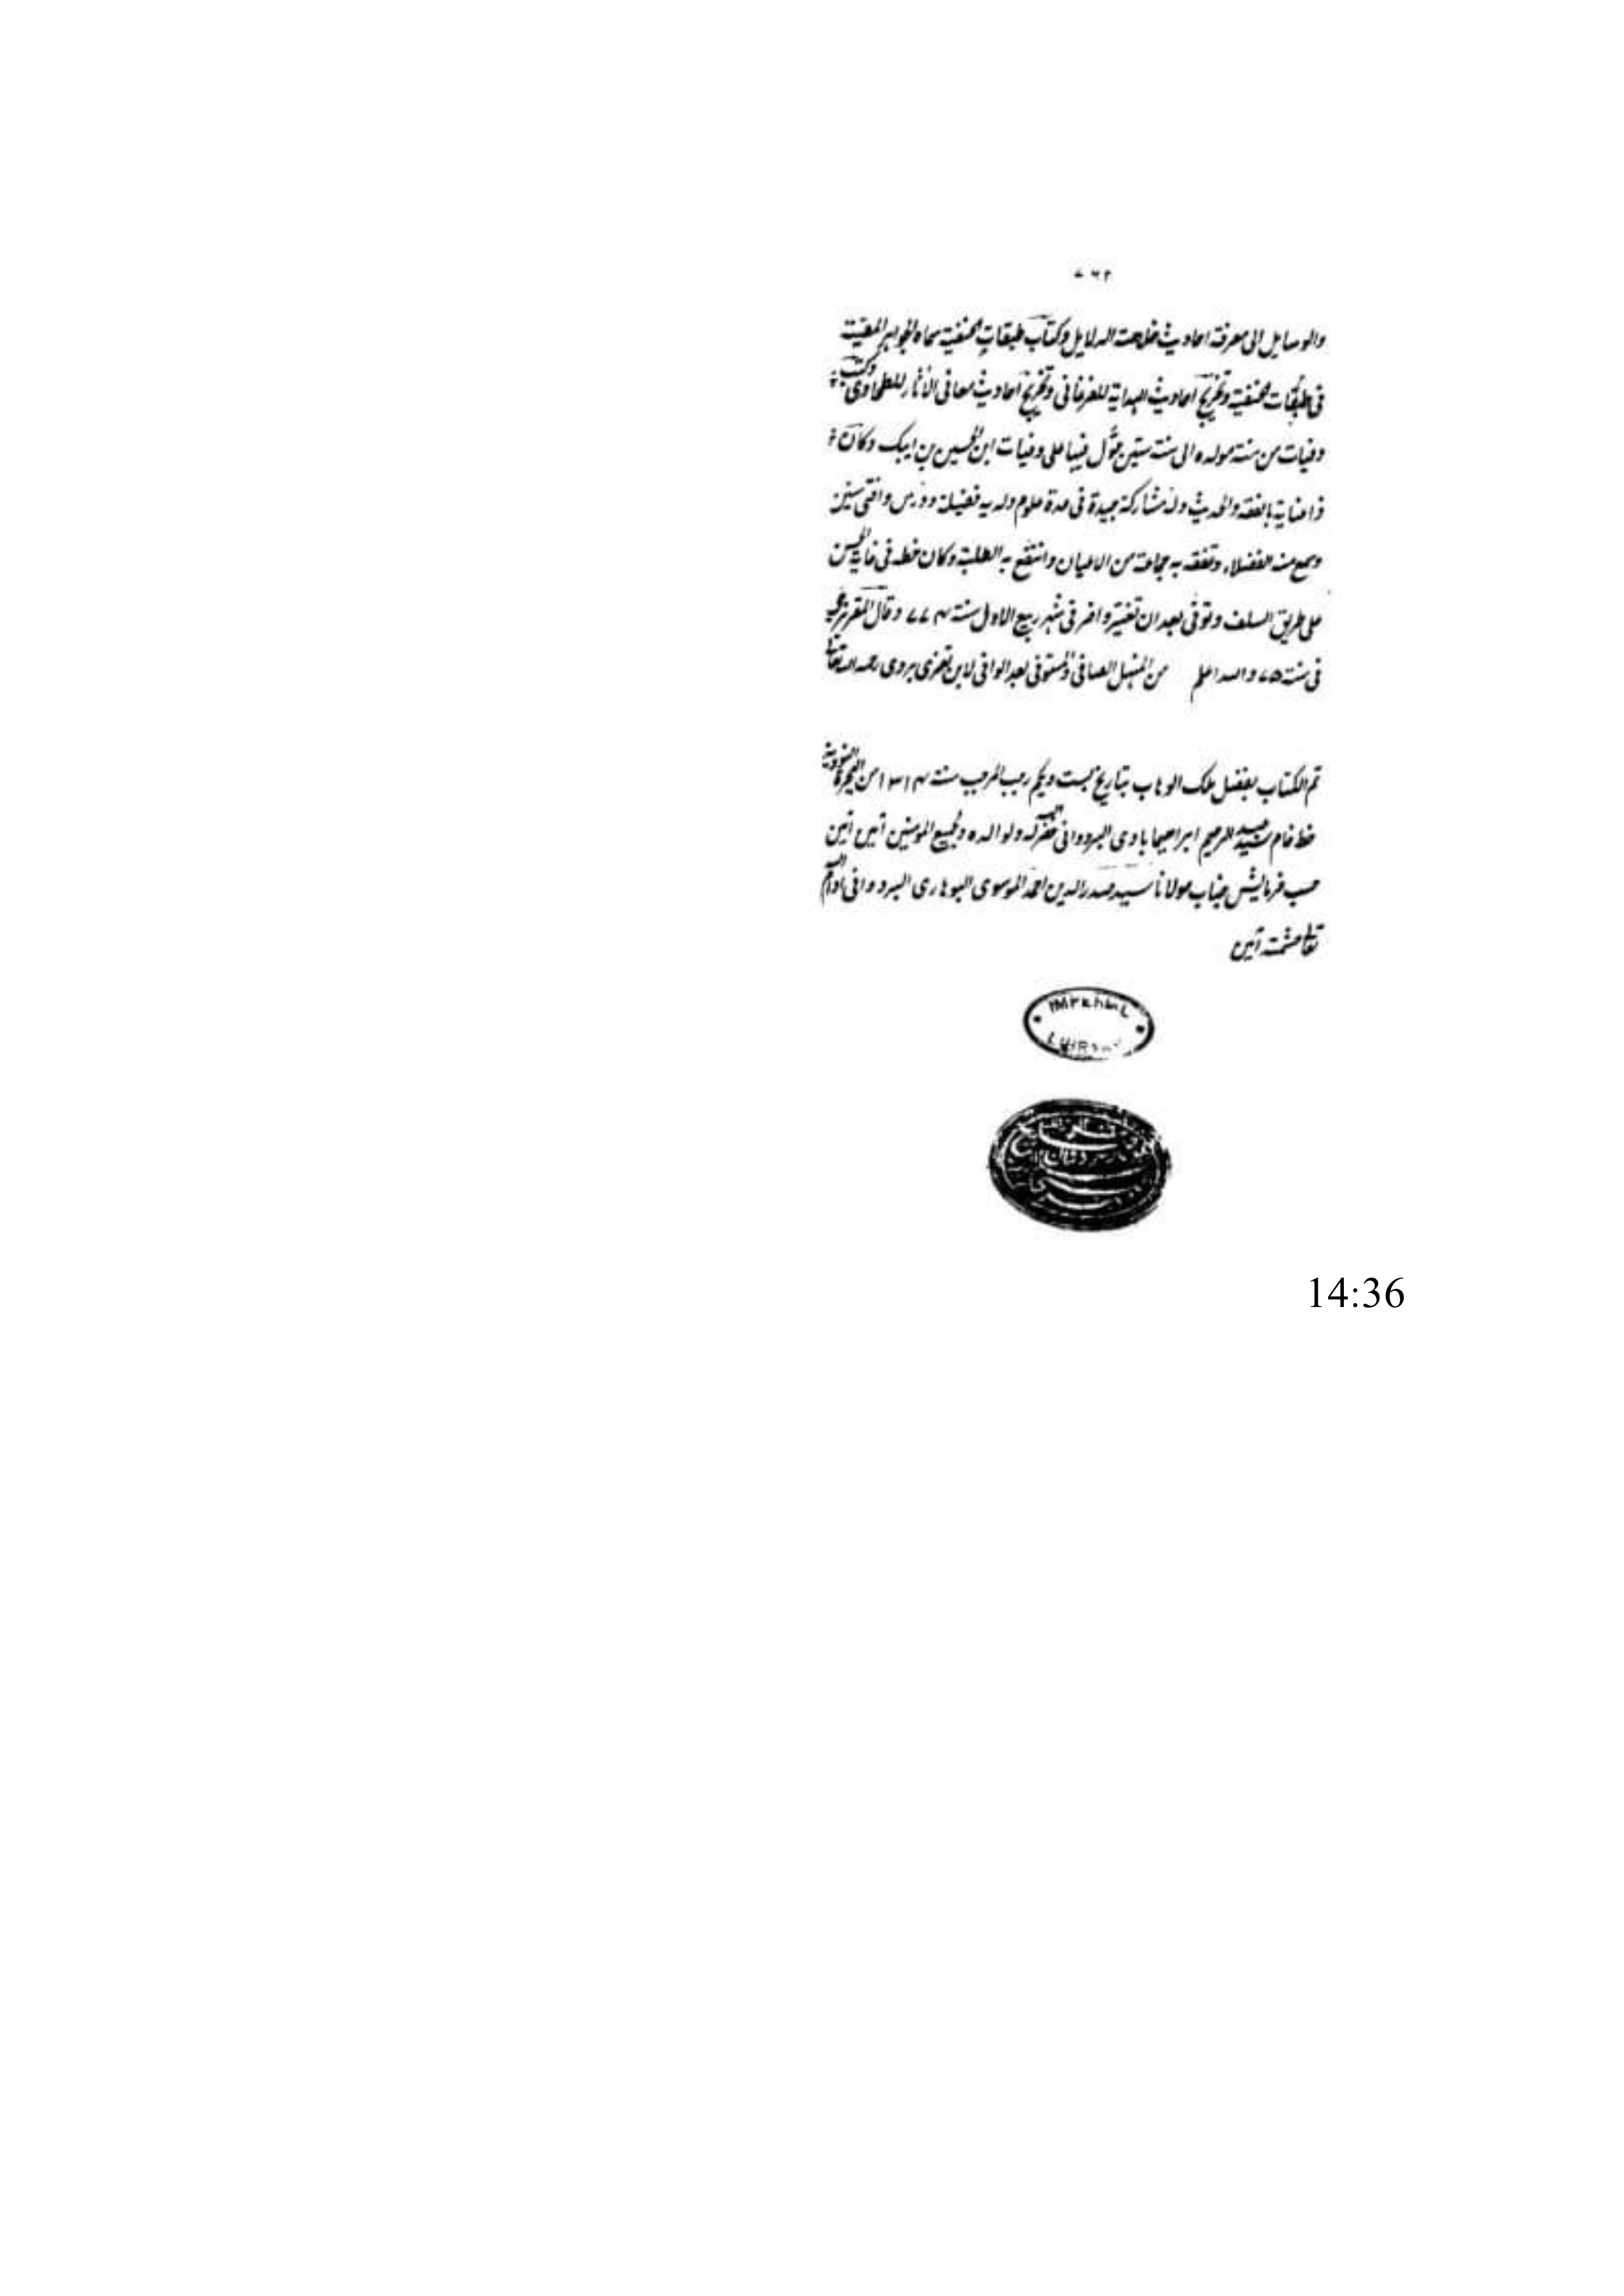 ۷۶۲
والوسایل الی معرفة احادیث خلاصة الدلایل وکتاب طبقات الحنفیة سماه الجواهر المضیئة
فی طبقات الحنفیة وتخریج احادیث الهدایة للمرغنانی وتخریج احادیث معانی الآثار للطحاوی وکتب
وفیات من سنة مولده الی سنة ستین ذیل فیها علی وفیات ابن الحسین بن ایبک وکان
ذا عنایة بالفقه والحدیث وله مشارکة جیدة فی عدة علوم ولدیه فضیلة ودرس وافتی سنین
وسمع منه الفضلاء وتفقه به جماعة من الاعیان وانتفع به الطلبة وکان خطه فی غایة الحسن
علی طریق السلف وتوفی بعد ان تغیر واضر فی شهر ربیع الاول سنة ۷۷۴ وقال المقریزی
فی سنة ۷۵ والله اعلم من المنهل الصافی والمستوفی بعد الوافی لابن تغری بردی رحمه الله تعالی
تم الکتاب بفضل ملک الوهاب بتاریخ بست ویکم رجب المرجب سنة ۱۳۱۴ من الهجرة النبویة
خط خام سید عبد الرحیم ابراهیمابادی البردوانی غفر الله له ولوالده ولجمیع المؤمنین آمین آمین
حسب فرمایش جناب مولانا سید صدرالدین احمد الموسوی البوهاری البردوانی ادام الله
تعالی حشمته آمین
IMPERIAL
LIBRARY
14:36